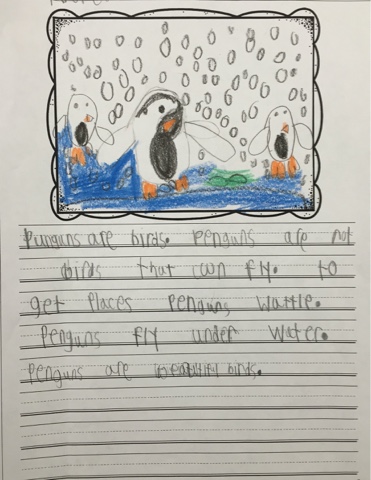 Punguns are birds. Penguns are not
birds that can fly. to
get Places Penguns wattle.
Penguns fly under water.
Penguns are beautify birds.